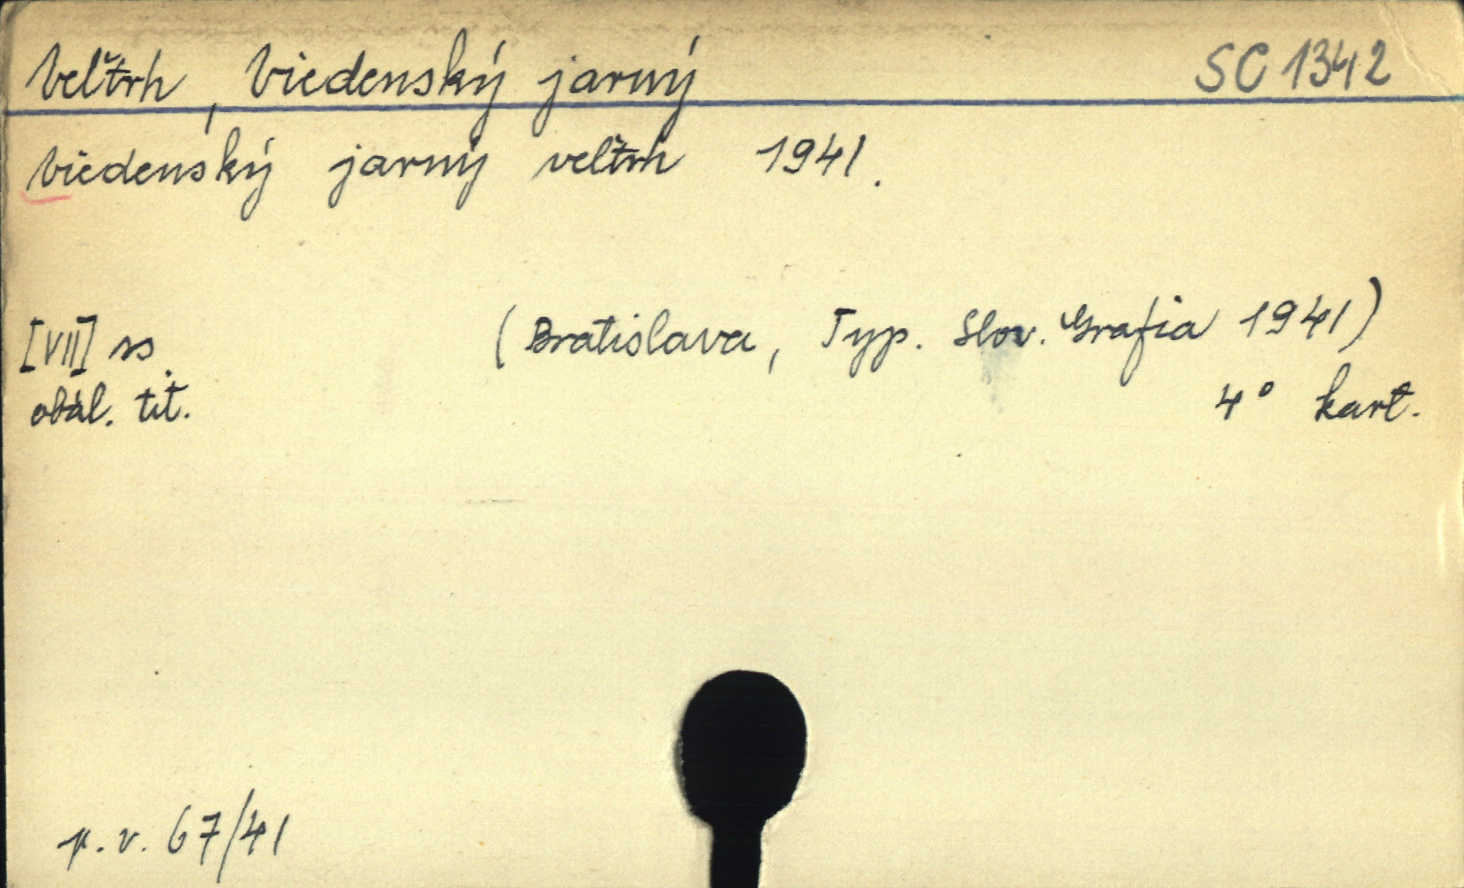 Veľtrh, Viedenský jarný SC 1342
Viedenský jarný veľtrh 1941.
[VII] ss. (Bratislava, Typ. Slov. Grafia 1941)
obál. tit. 4° kart.
p. v. 67/41